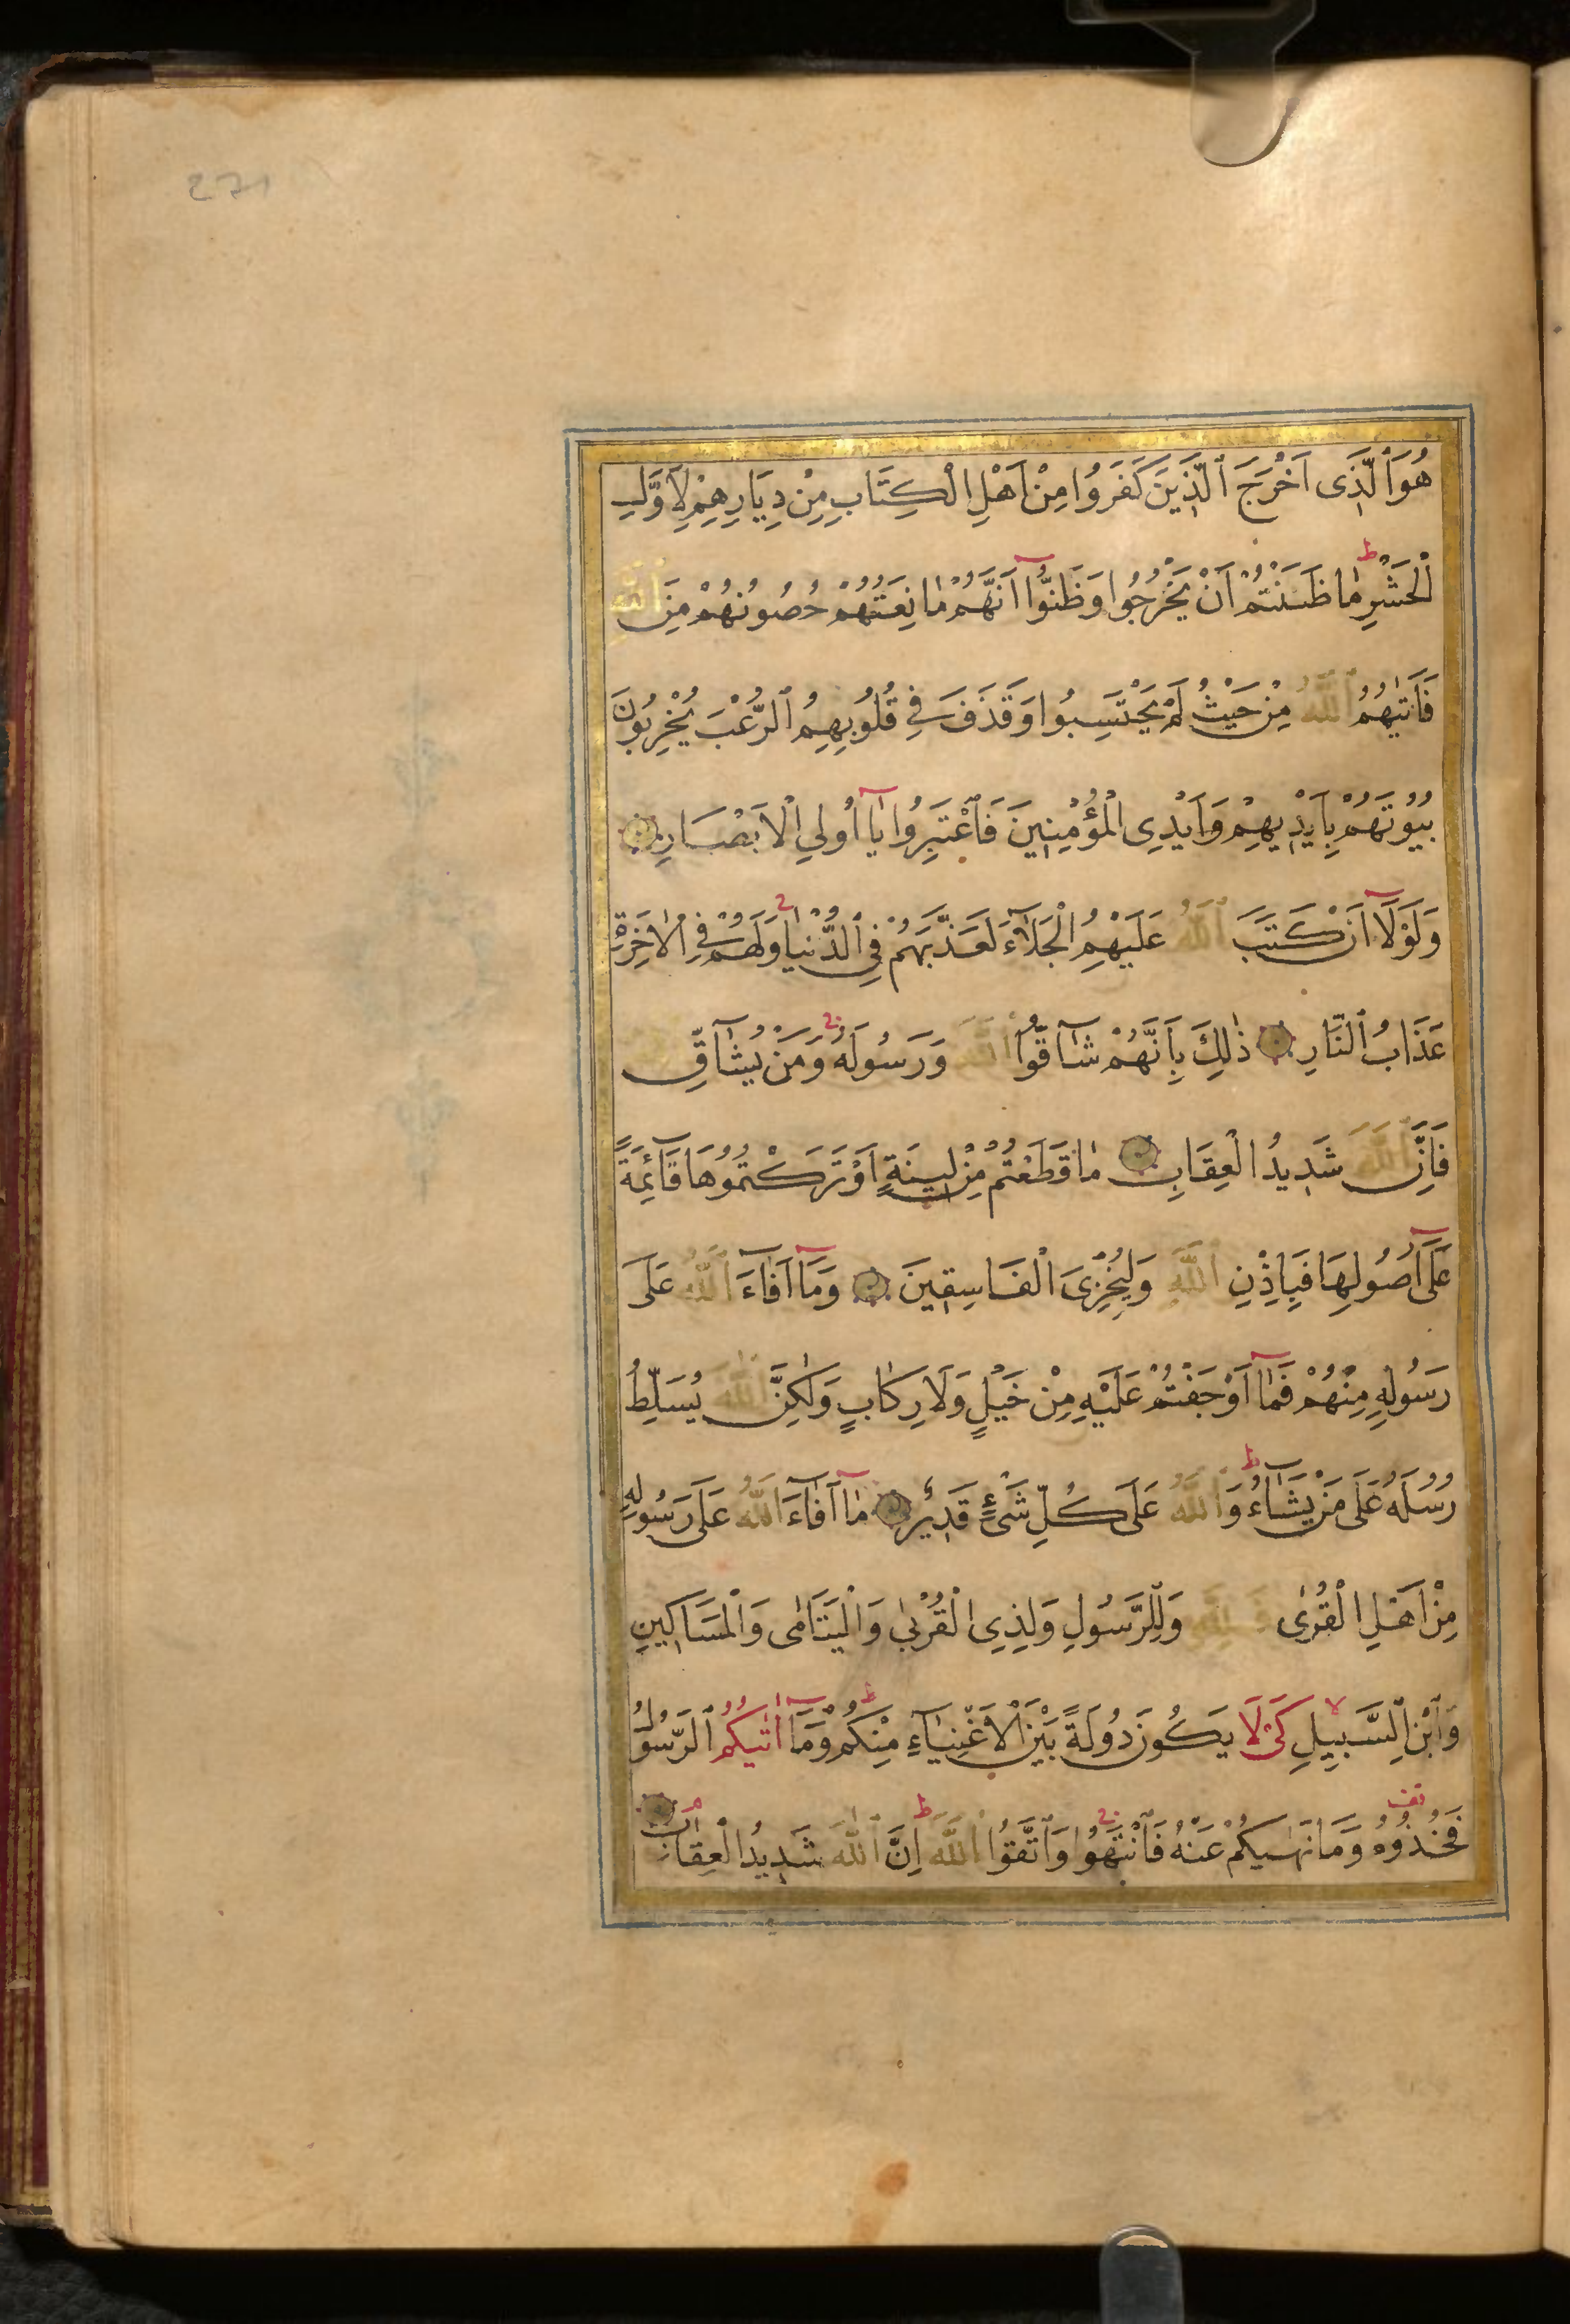 271
هُوَ ٱلَّذَى اَخْرَجَ ٱلَّذِينَ كَفَرُوا مِنْ اَهْلِ الْكِتَابِ مِنْ دِيَارِهِمْ لِاَوَّلِ
ٱلْحَشْرِ ط مٰا ظَنَنْتُمْ اَنْ يَخْرُجُوا وَظَنُّوٓا اَنَّهُمْ مٰانِعَتُهُمْ حُصُونُهُمْ مِنَ ٱللّٰهِ
فَاَتٰيهُمُ ٱللّٰهُ مِنْ حَيْثُ لَمْ يَحْتَسِبُوا وَقَذَفَ فِي قُلُوبِهِمُ ٱلرُّعْبَ يُخْرِبُونَ
بُيُوتَهُمْ بِاَيْدِيهِمْ وَاَيْدِى الْمُؤْمِنِينَ فَٱعْتَبِرُوا يَٓا اُولِي الْاَبْصَارِ
وَلَوْلَٓا اَنْ كَتَبَ ٱللّٰهُ عَلَيْهِمُ الْجَلَآءَ لَعَذَّبَهُمْ فِي ٱلدُّنْيٰا وَلَهُمْ فِي الْاٰخِرَةِ
عَذَابُ ٱلنَّارِ ذٰلِكَ بِاَنَّهُمْ شَٓاقُّوا ٱللّٰهَ وَرَسُولَهُ وَمَنْ يُشَٓاقِّ
فَاِنَّ ٱللّٰهَ شَدِيدُ الْعِقَابِ مٰا قَطَعْتُمْ مِنْ لِينَةٍ اَوْ تَرَكْتُمُوهَا قَٓائِمَةً
عَلَٓى اُصُولِهَا فَبِاِذْنِ ٱللّٰهِ وَلِيُخْزِىَ الْفَاسِقِينَ وَمَٓا اَفَٓاءَ ٱللّٰهُ عَلَى
رَسُولِهِ مِنْهُمْ فَمَٓا اَوْجَفْتُمْ عَلَيْهِ مِنْ خَيْلٍ وَلَا رِكَابٍ وَلٰكِنَّ ٱللّٰهَ يُسَلِّطُ
رُسُلَهُ عَلَى مَنْ يَشَٓاءُ ط وَٱللّٰهُ عَلَى كُلِّ شَىْءٍ قَدِيرٌ مَٓا اَفَٓاءَ ٱللّٰهُ عَلَى رَسُولِهِ
مِنْ اَهْلِ الْقُرٰى فَلِلّٰهِ وَلِلرَّسُولِ وَلِذِى الْقُرْبٰى وَالْيَتَامٰى وَالْمَسَاكِينِ
وَٱبْنِ ٱلسَّبِيلِ لا كَىْ لَا يَكُونَ دُولَةً بَيْنَ الْاَغْنِيَٓاءِ مِنْكُمْ ط وَمَٓا اٰتٰيكُمُ ٱلرَّسُولُ
فَخُذُوهُ وَمَا نَهٰيكُمْ عَنْهُ فَٱنْتَهُوا وَٱتَّقُوا ٱللّٰهَ ط اِنَّ ٱللّٰهَ شَدِيدُ الْعِقَابِ